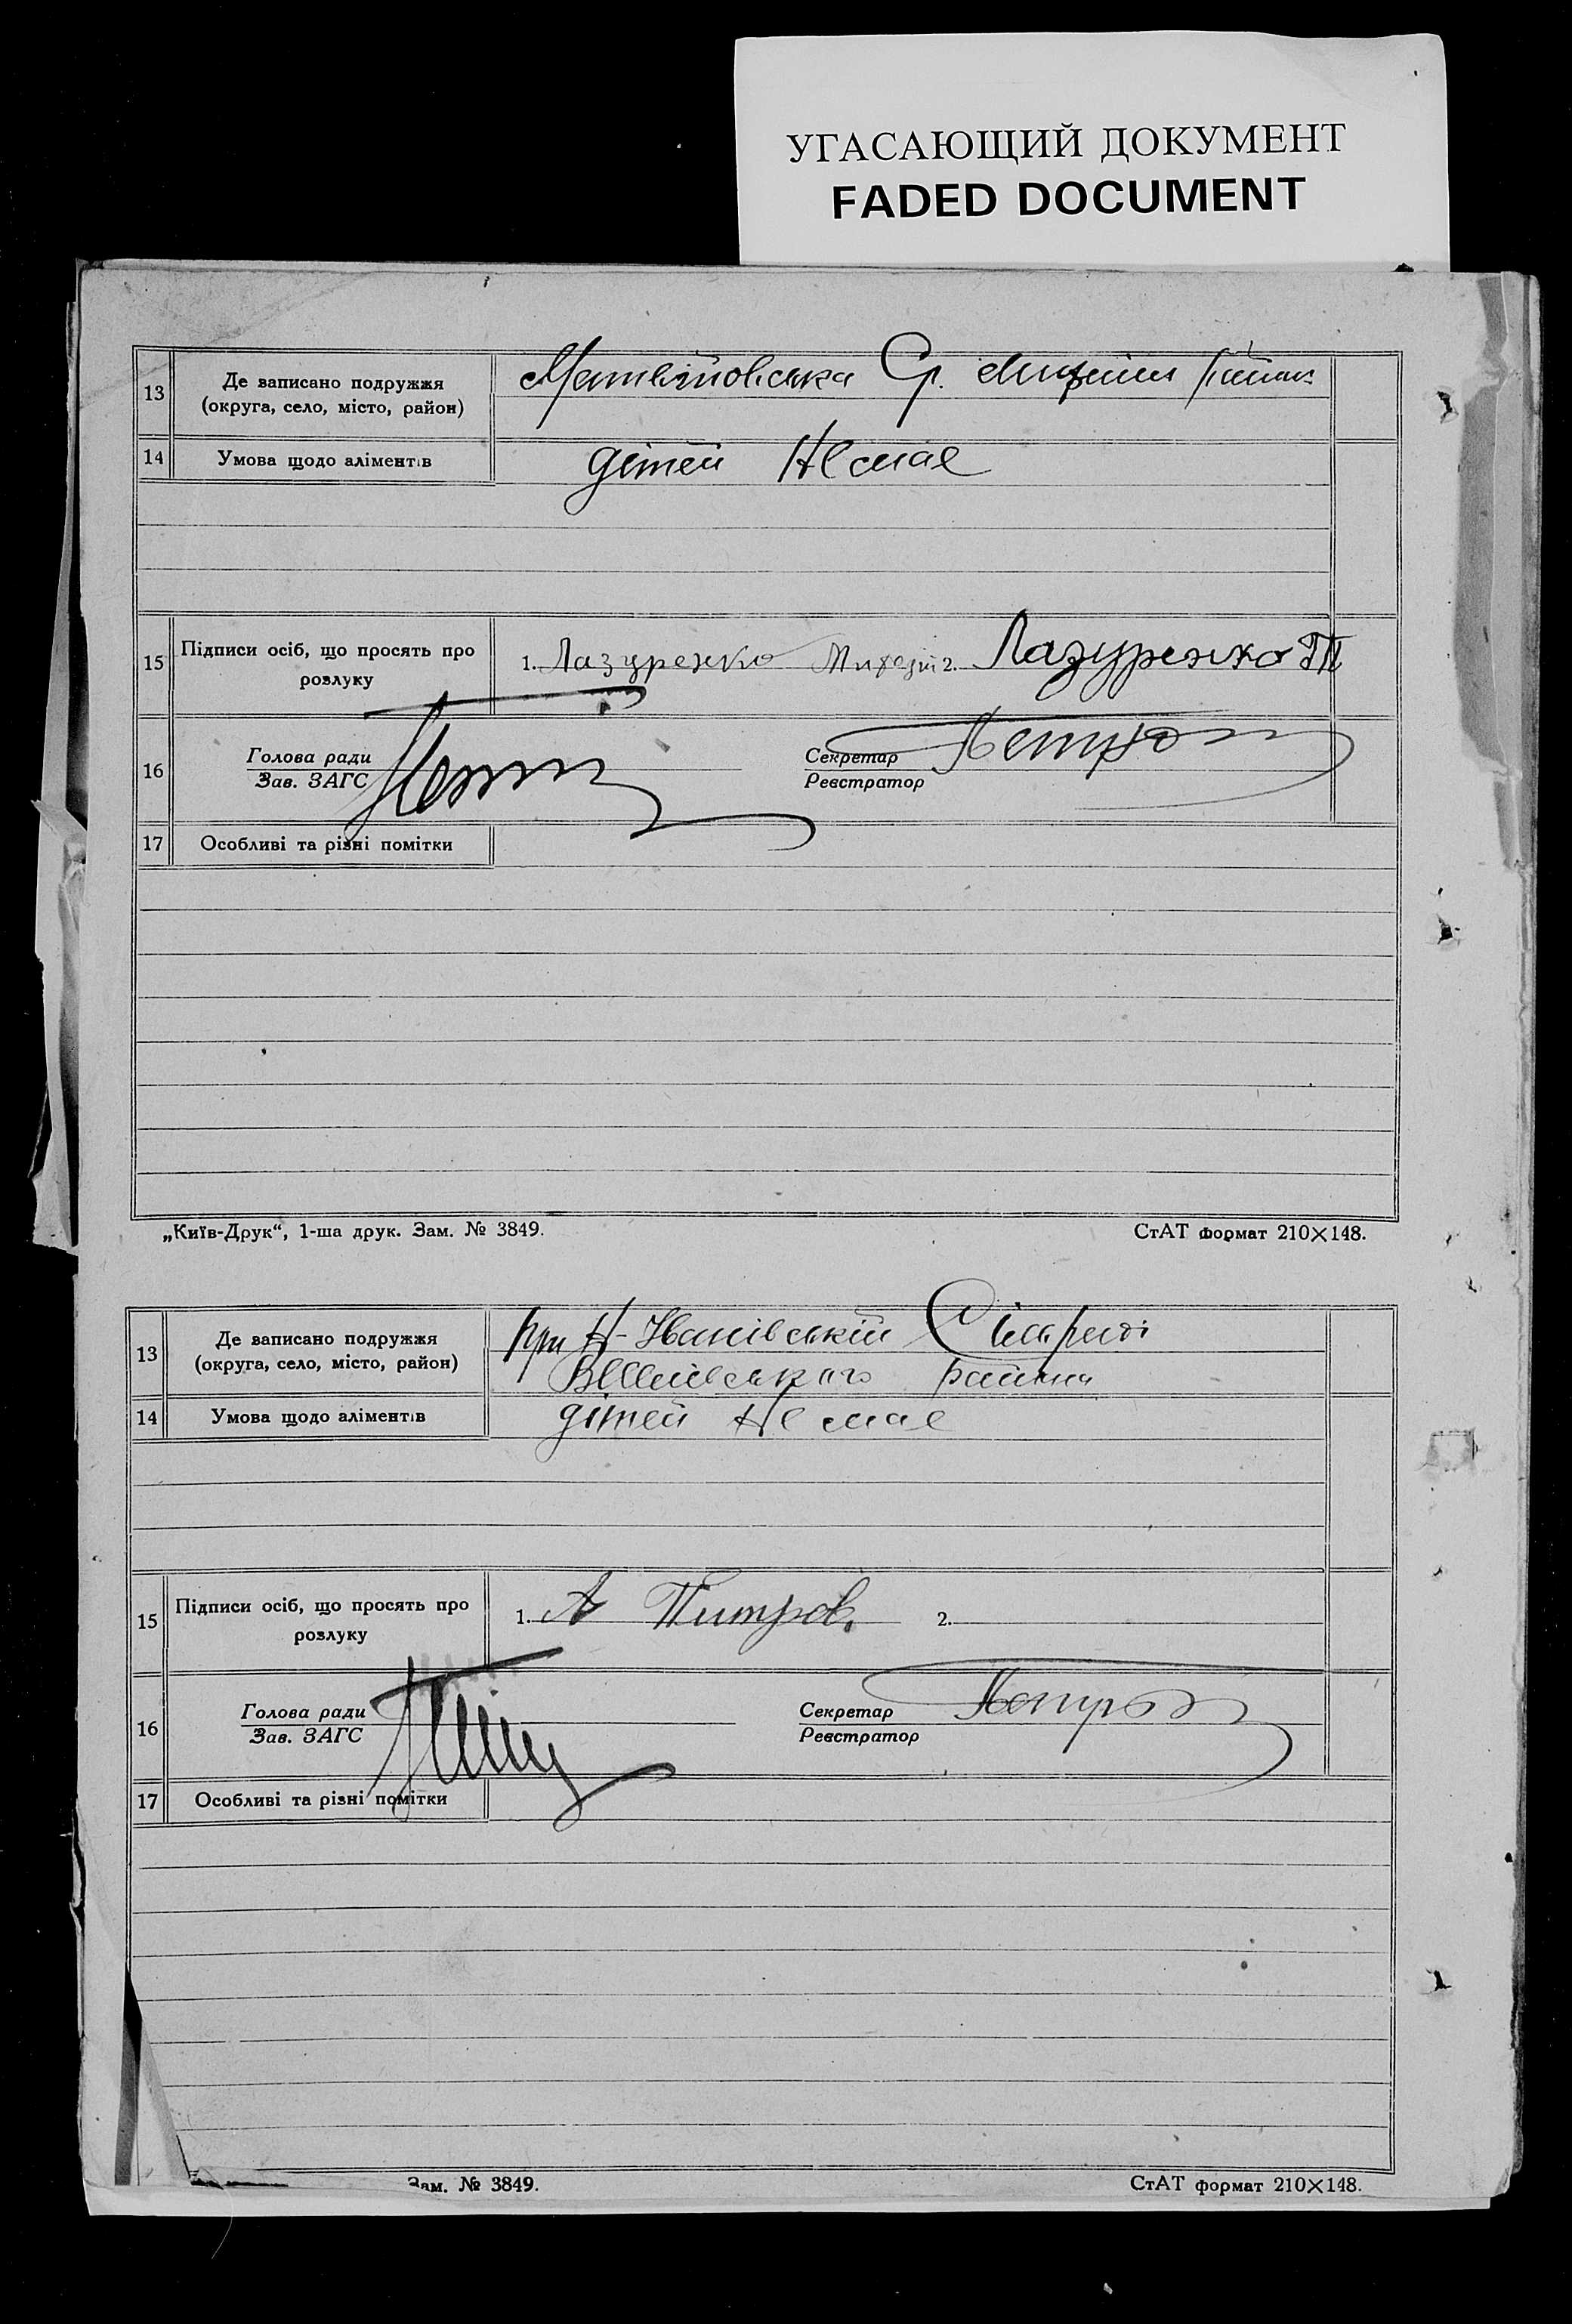 УГАСАЮЩИЙ ДОКУМЕНТ
FADED DOCUMENT
13
Де записано подружжя
(округа, село, місто, район)
14
Умова щодо аліментів
дітей Немає
15
Підписи осіб, що просять про
розлуку
1. Лазуренко 2. Лазуренко
16
Голова ради
Зав. ЗАГС
Секретар
Реєстратор
17
Особливі та різні помітки
„Київ-Друк“, 1-ша друк. Зам. № 3849.
СтАТ формат 210×148.
13
Де записано подружжя
(округа, село, місто, район)
при Н-Іванівській Сільраді
району
14
Умова щодо аліментів
дітей Немає
15
Підписи осіб, що просять про
розлуку
1. А Питров 2.
16
Голова ради
Зав. ЗАГС
Секретар
Реєстратор
17
Особливі та різні помітки
Зам. № 3849.
СтАТ формат 210×148.